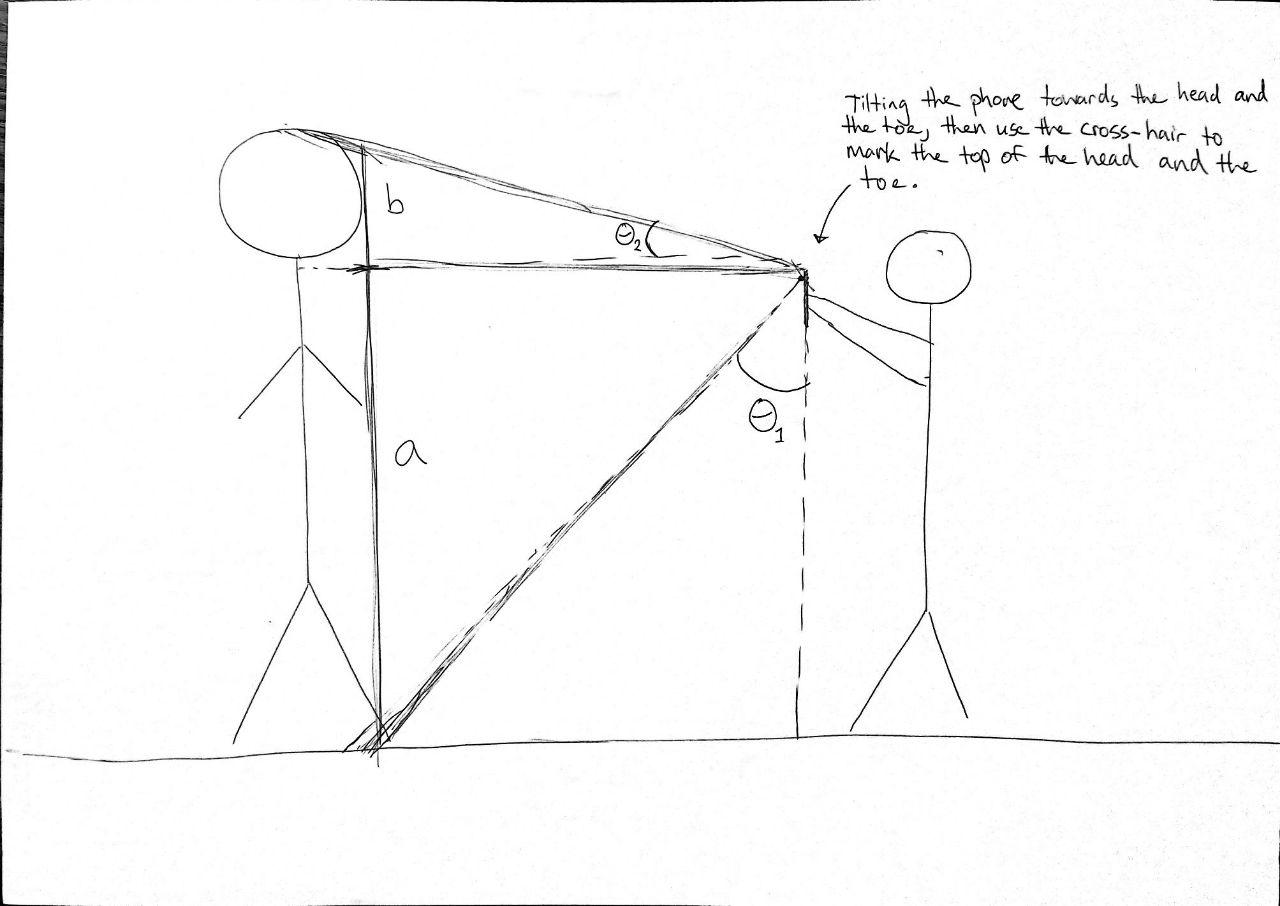 Tilting the phone towards the head and
the toe, then use the cross-hair to
mark the top of the head and the
toe.
b
θ2
θ1
a